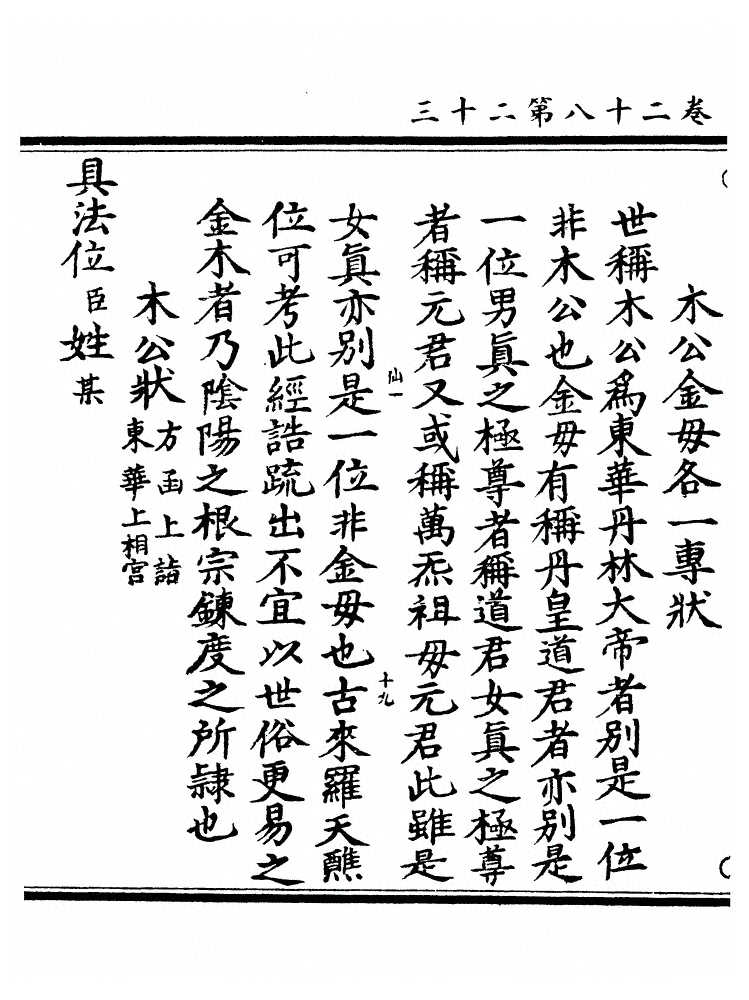 卷二十八第二十三
木公金毋各一專狀
世稱木公爲東華丹林大帝者別是一位
非木公也金毋有稱丹皇道君者亦別是
一位男眞之極尊者稱道君女眞之極尊
者稱元君又或稱萬炁祖毋元君此雖是
仙一
十九
女眞亦别是一位非金毋也古來羅天醮
位可考此經誥疏出不宜以世俗更易之
金木者乃陰陽之根宗鍊度之所隷也
木公狀 方函上詣 東華上相宮
具法位臣姓某